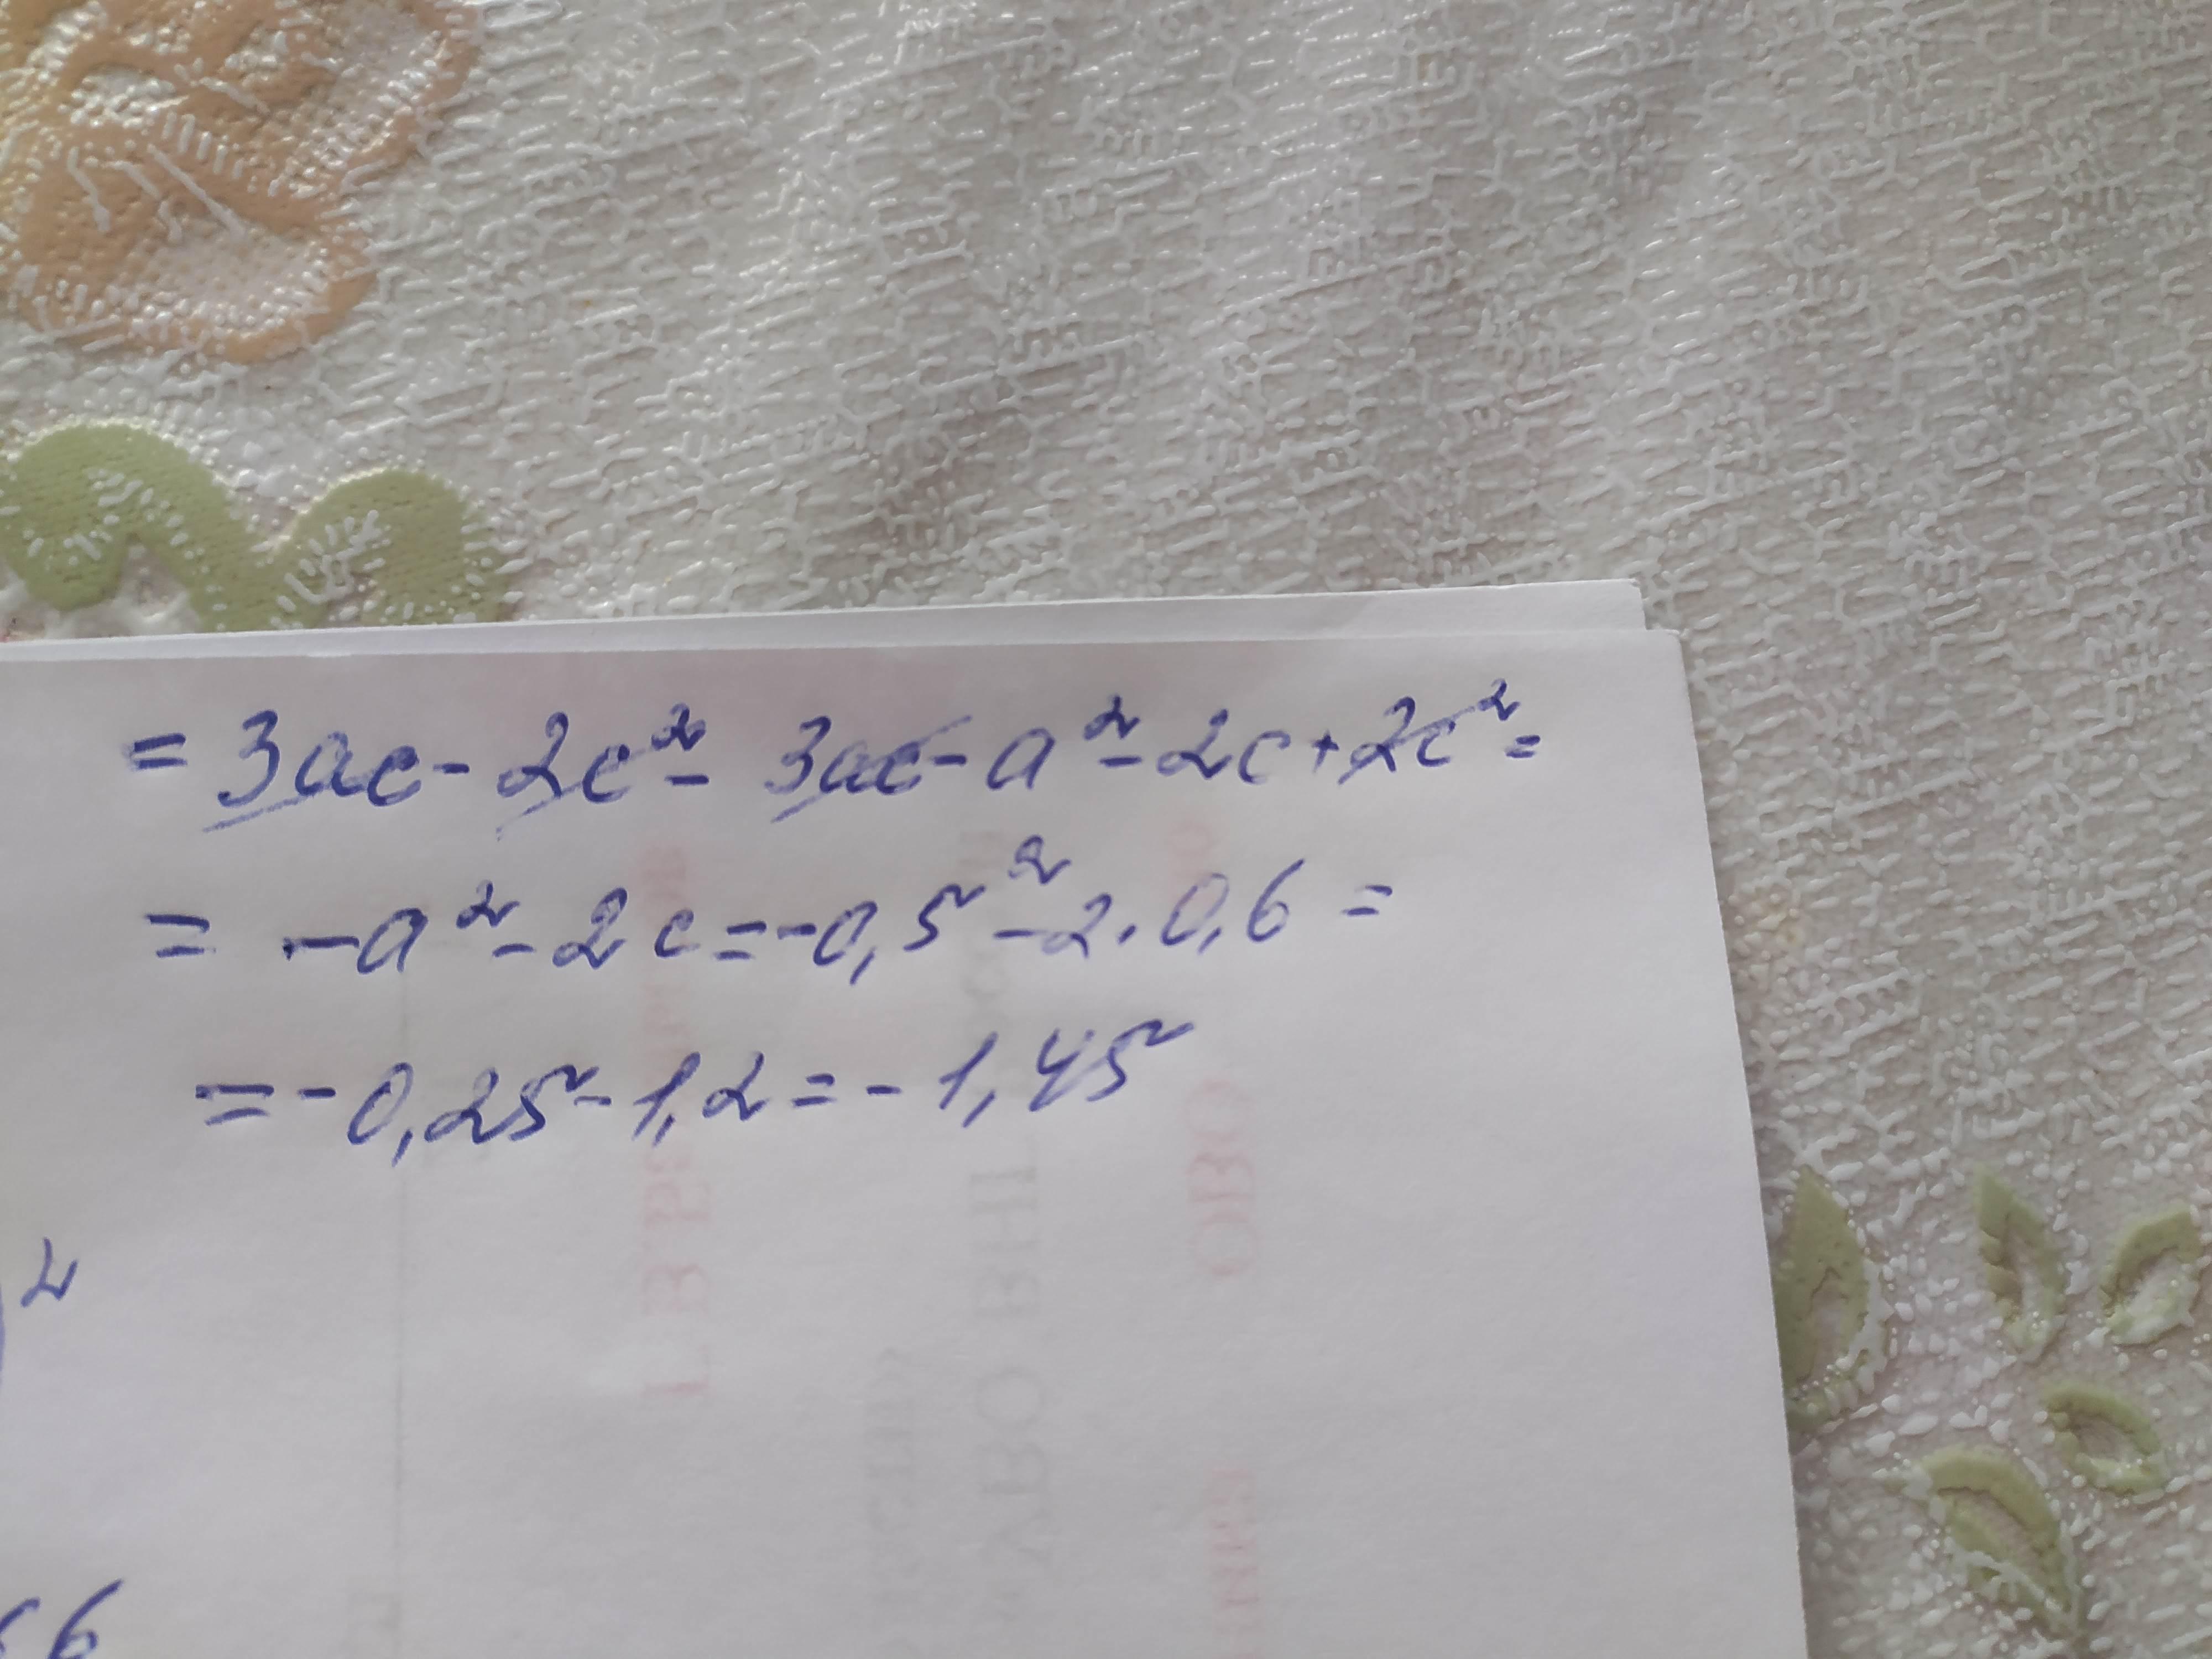 = 3ac - 2c² - 3ac - a² - 2c + 2c² =
= -a² - 2c = -0,5² - 2 . 0,6 =
= -0,25 - 1,2 = -1,45
2
6